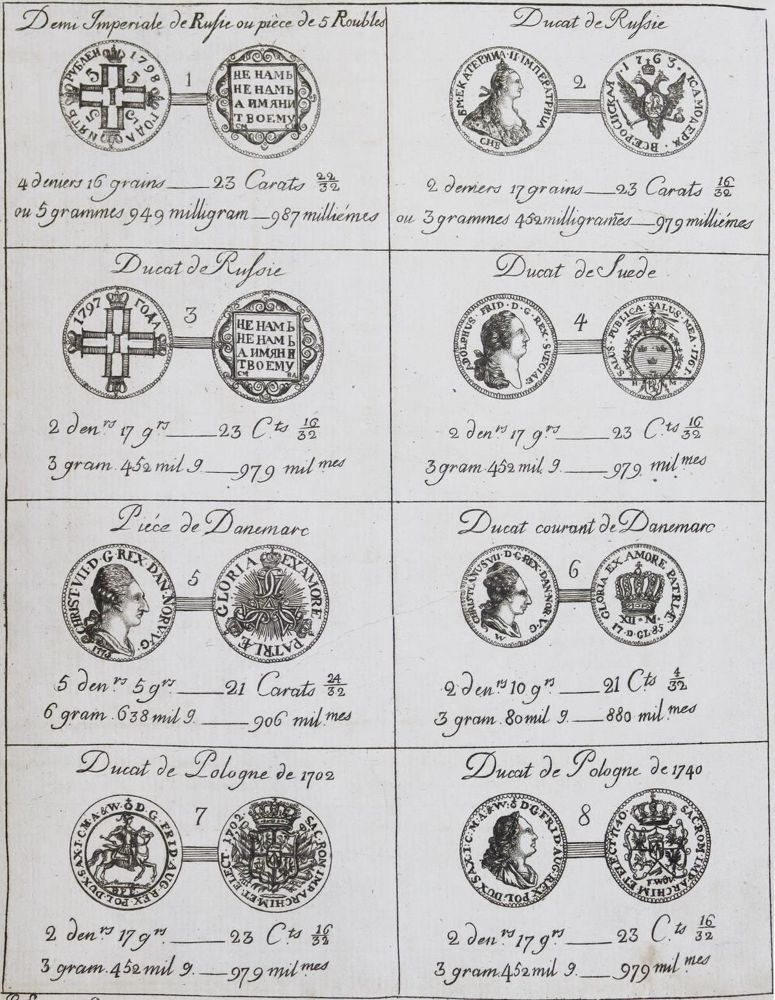 Demi Imperiale de Rusie ou pièce de 5 Roubles
ПЯТЬ РУБЛЕЙ 1798 ГОДА
5 5 5 5
1
НЕ НАМЬ
НЕ НАМЬ
А ИМЯНИ
ТВОЕМУ
4 deniers 16 grains — 23 Carats 22/32
ou 5 grammes 949 milligram — 987 milliémes
Ducat de Rußie
Б·М·ЕКАТЕРИНА·II·ИМПЕРАТРИЦА
СПБ
2
1763·
ІСАМОДЕРЖ·ВСЕРОСИСКАЯ
2 deniers 17 grains — 23 Carats 16/32
ou 3 grammes 452 milligrames — 979 milliémes
Ducat de Rußie
1797 ГОДА
3
НЕ НАМЬ
НЕ НАМЬ
А ИМЯНИ
ТВОЕМУ
2 den.rs 17 grs — 23 C.ts 16/32
3 gram. 452 mil g. — 979 mil.mes
Ducat de Suede
ADOLPHUS FRID·D·G·REX SUECIAE·
4
SALUS PUBLICA SALUS MEA·1761·
H M
2 den.rs 17 grs — 23 C.ts 16/32
3 gram. 452 mil. g. — 979 mil.mes
Piéce de Danemarc
CHRIST·VII·D·G·REX·DAN·NOR·V·G·
5
GLORIA EX AMORE PATRIÆ
5 den.rs 5 grs — 21 Carats 24/32
6 gram. 638 mil g. — 906 mil.mes
Ducat courant de Danemarc
CHRISTIANUS VII·D·G·REX·DAN·NOR·V·G·
W
6
GLORIA EX AMORE PATRIÆ
XII·M·
17·D·GL·85
2 den.rs 10 grs — 21 C.ts 4/32
3 gram. 80 mil g. — 880 mil.mes
Ducat de Pologne de 1702
D·G·FRID·AUG·REX·POL·DUX·SAX·I·C·M·A&W·
7
SAC·ROM·IMP·ARCHIM·ET·ELECT·1702·
2 den.rs 17 grs — 23 C.ts 16/32
3 gram. 452 mil g. — 979 mil.mes
Ducat de Pologne de 1740
D·G·FRID·AUG·REX·POL·DUX·SAX·I·C·M·A&W·
8
SAC·ROM·IMP·ARCHIM·ET·ELECT·1740·
2 den.rs 17 grs — 23 C.ts 16/32
3 gram. 452 mil g. — 979 mil.mes